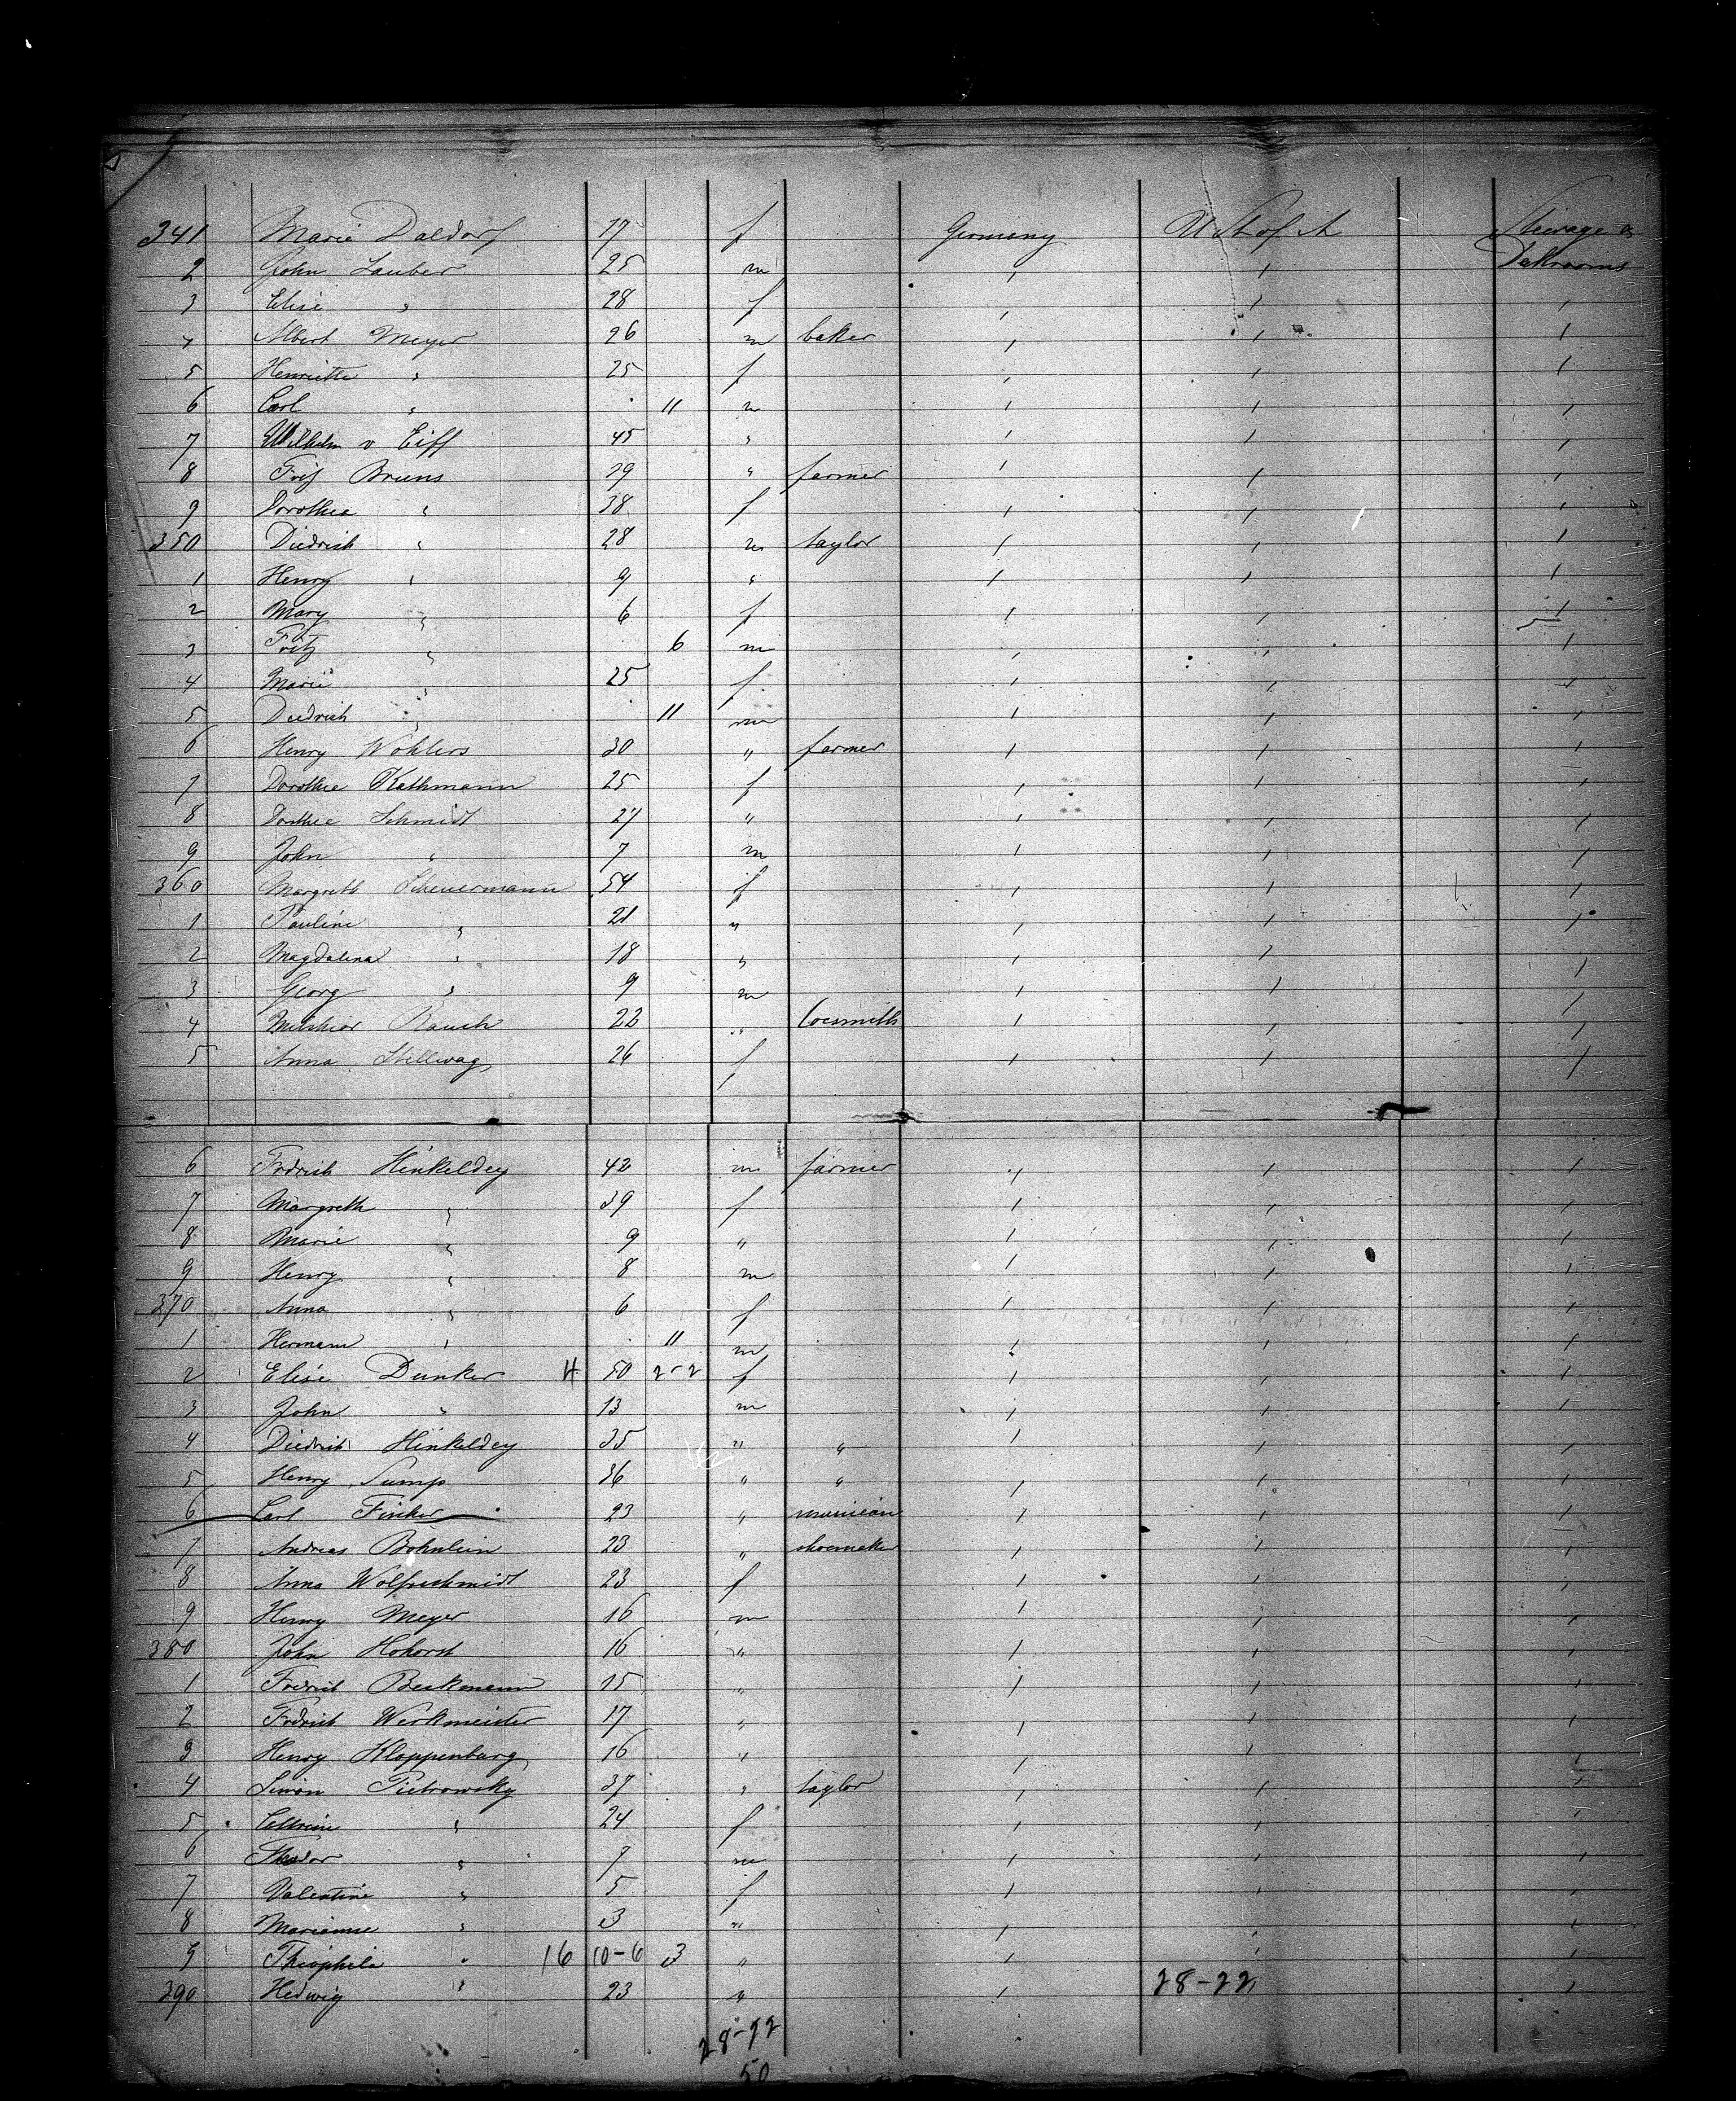 341 Marie Daldorf 17 f Germany U St of A Steerage &
2 John Lauber 25 m " " Deckrooms
3 Elise " 28 f " " "
4 Albert Meyer 26 m baker " " "
5 Henriette " 25 f " " "
6 Carl " 11 m " " "
7 Wilhelm v Eiff 45 " " " "
8 Fritz Bruns 29 " farmer " " "
9 Dorothea " 38 f " " "
350 Diedrich " 28 m taylor " " "
1 Henry " 9 " " " "
2 Mary " 6 f " " "
3 Fritz " 6 m " " "
4 Marie " 25 f " " "
5 Diedrich " 11 m " " "
6 Henry Wohlers 30 " farmer " " "
7 Dorothee Kathmann 25 f " " "
8 Dorthee Schmidt 27 " " " "
9 John " 7 m " " "
360 Margreth Scheuermann 54 f " " "
1 Pauline " 21 " " " "
2 Magdalena " 18 " " " "
3 Georg " 9 m " " "
4 Melchior Rauch 22 " locsmith " " "
5 Anna Stellwag 26 f " " "
6 Fredrich Hinkeldey 42 m farmer " " "
7 Margreth " 39 f " " "
8 Marie " 9 " " " "
9 Henry " 8 m " " "
370 Anna " 6 f " " "
1 Hermann " 11 m " " "
2 Elise Dunker H 50 2-2 f " " "
3 John " 13 m " " "
4 Diedrich Hinkeldey 35 " " " " "
5 Henry Sump 36 " " " " "
6 Carl Finker 23 " musician " " "
7 Andreas Bohnlein 23 " shoemaker " " "
8 Anna Wolfschmidt 23 f " " "
9 Henry Meyer 16 m " " "
380 John Hohorst 16 " " " "
1 Fredrich Beckmann 15 " " " "
2 Fredrich Werkmeister 17 " " " "
3 Henry Kloppenburg 16 " " " "
4 Simon Pietrowsky 37 " taylor " " "
5 " 24 f " " "
6 Theodor " 7 m " " "
7 Valentine " 5 f " " "
8 Marianne " 3 " " " "
9 Theophila " 16 10-6 3 " " " "
390 Hedwig " 23 " " 28-22 "
28-22
50